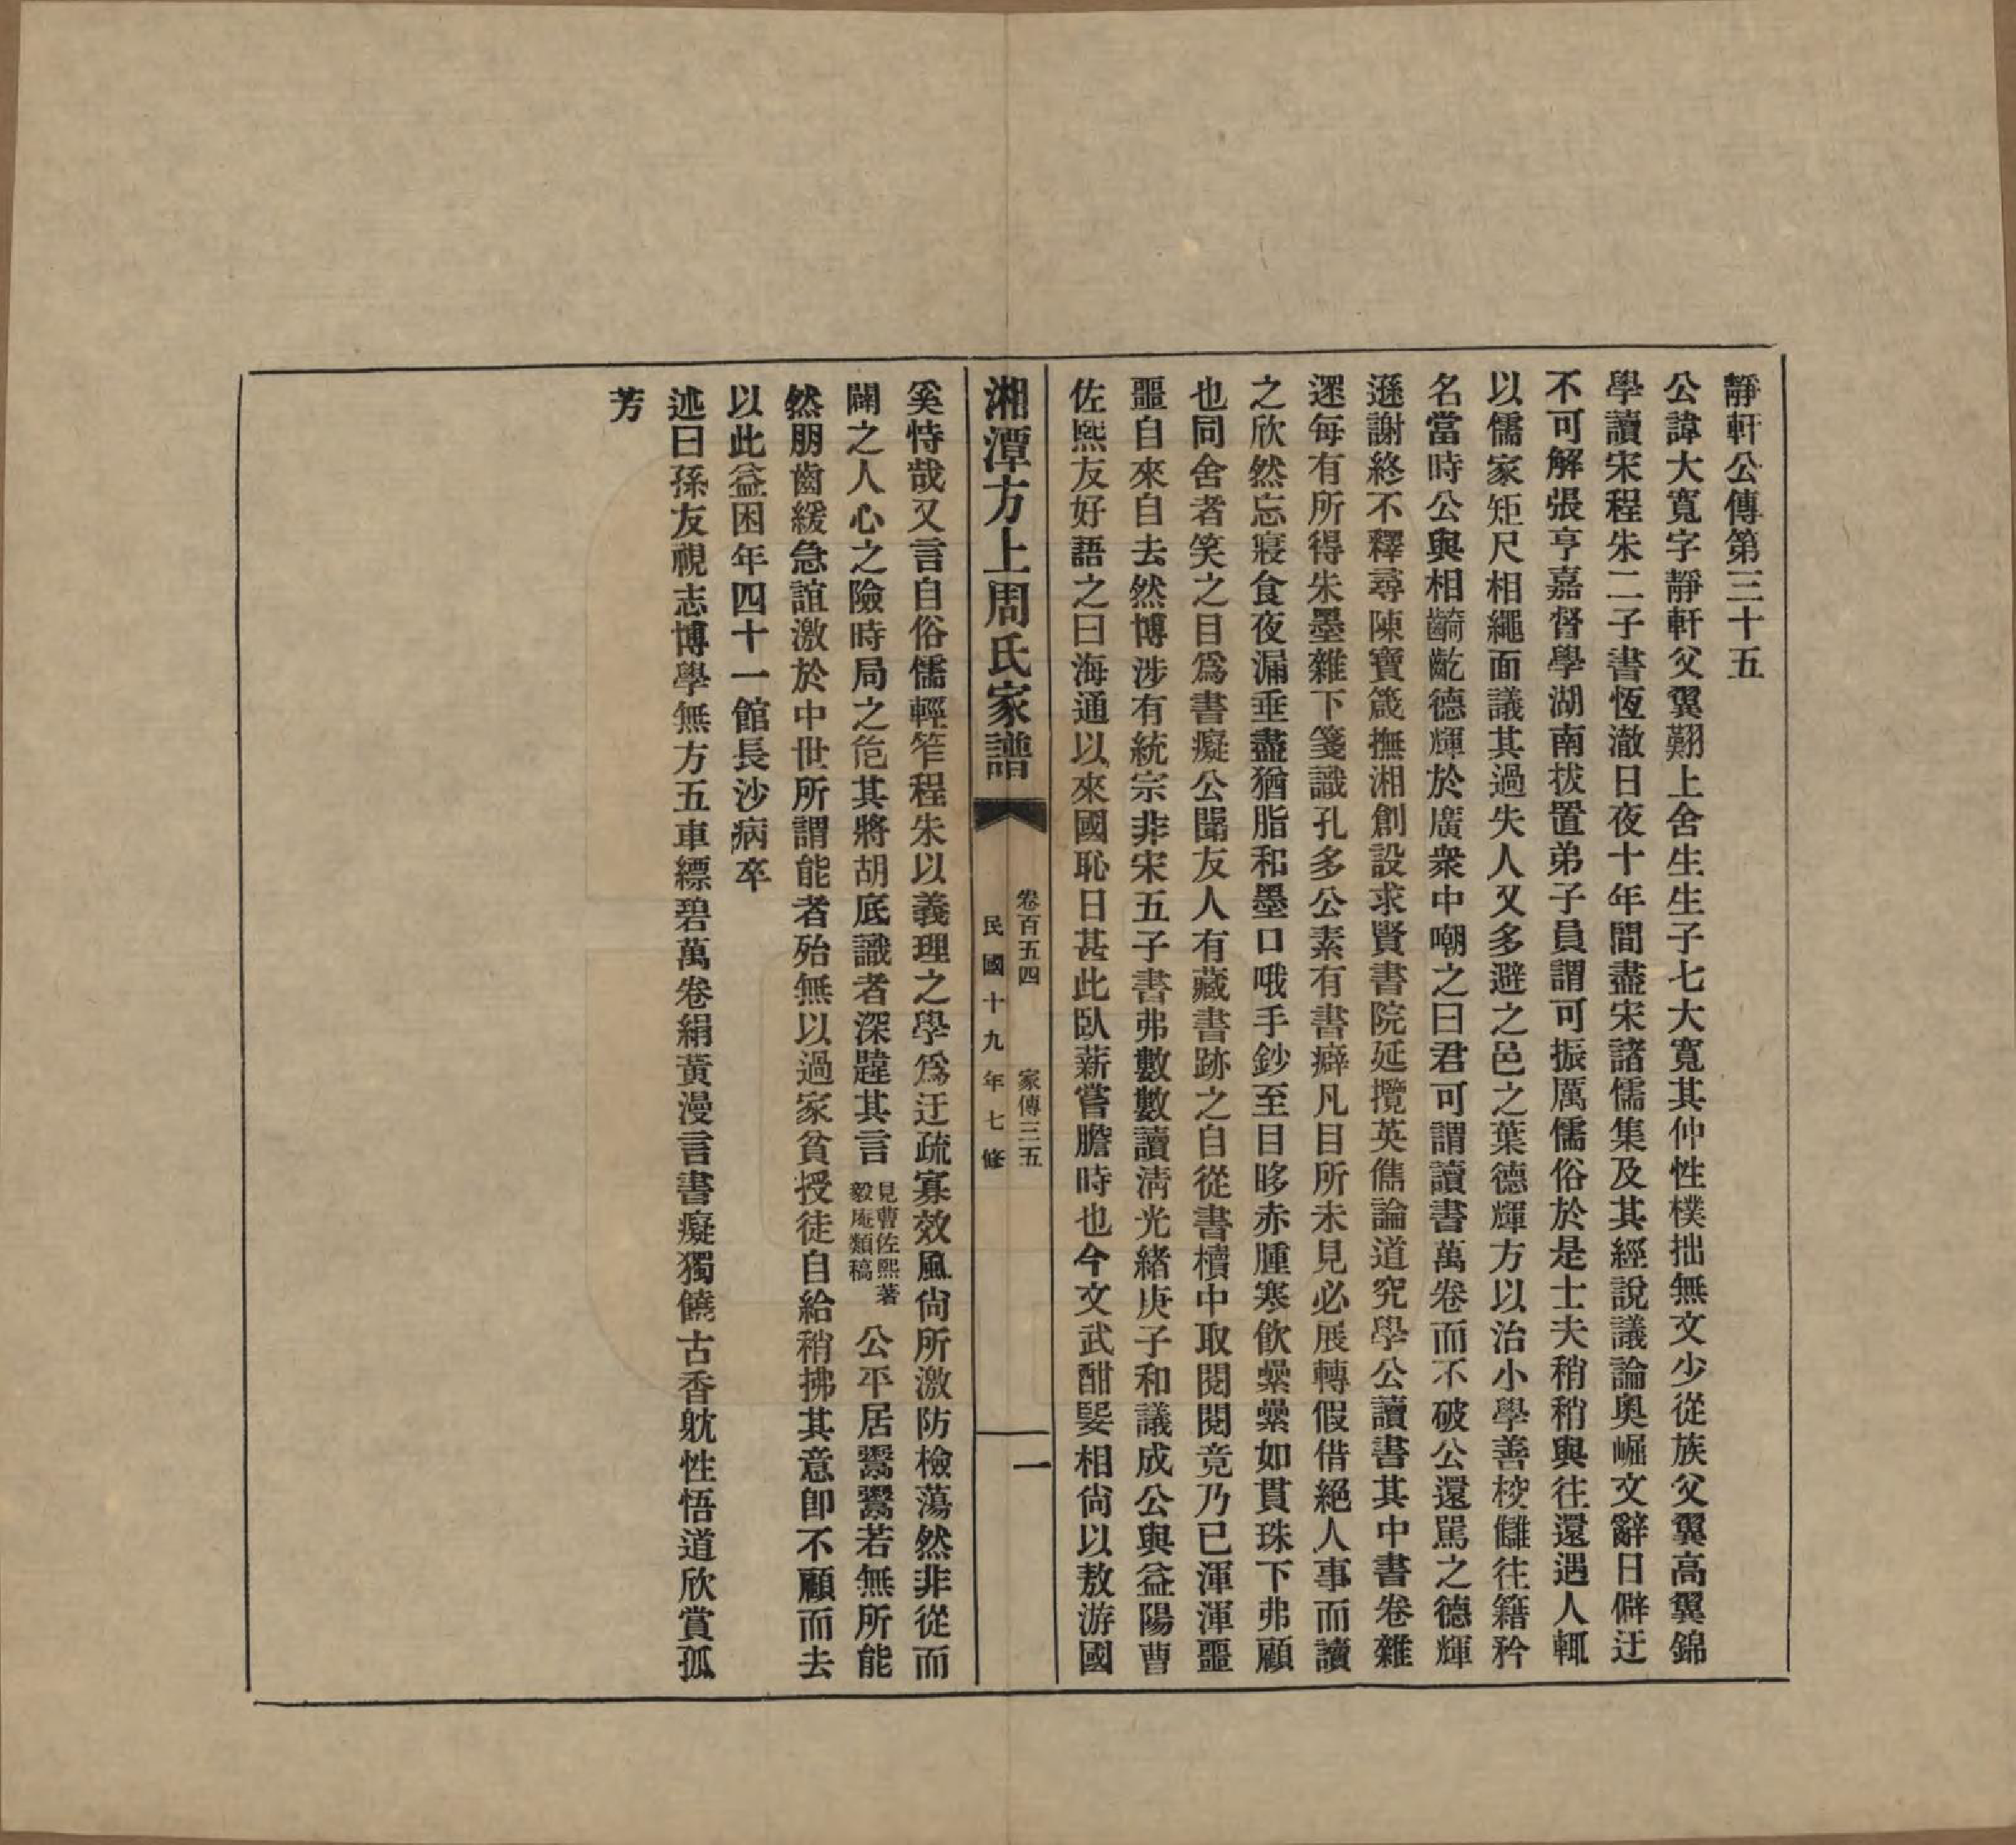 靜軒公傳第三十五
公諱大寬字靜軒父翼翺上舍生生子七大寬其仲性樸拙無文少從族父翼高翼錦
學讀宋程朱二子書恆澈日夜十年間盡宋諸儒集及其經說議論奧崛文辭日僻迂
不可解張亨嘉督學湖南拔置弟子員謂可振厲儒俗於是士夫稍稍與往還遇人輒
以儒家矩尺相繩面議其過失人又多避之邑之葉德輝方以治小學善校讎往籍矜
名當時公與相齮齕德輝於廣衆中嘲之曰君可謂讀書萬卷而不破公還駡之德輝
遜謝終不釋尋陳寶箴撫湘創設求賢書院延攬英儁論道究學公讀書其中書卷雜
遝每有所得朱墨雜下箋識孔多公素有書癖凡目所未見必展轉假借絕人事而讀
之欣然忘寢食夜漏垂盡猶脂和墨口哦手鈔至目眵赤腫寒飲纍纍如貫珠下弗顧
也同舍者笑之目爲書癡公聞友人有藏書跡之自從書櫝中取閱閱竟乃已渾渾噩
噩自來自去然博涉有統宗非宋五子書弗數數讀淸光緒庚子和議成公與益陽曹
佐熙友好語之曰海通以來國恥日甚此臥薪嘗膽時也今文武酣嬉相尙以敖游國
湘潭方上周氏家譜
卷百五四 家傳三五
民國十九年七修
一
奚恃哉又言自俗儒輕笮程朱以義理之學爲迂疏寡效風尙所激防檢蕩然非從而
闢之人心之險時局之危其將胡底識者深韙其言 見曹佐熙著毅庵類稿 公平居鬻鬻若無所能
然朋齒緩急誼激於中世所謂能者殆無以過家貧授徒自給稍拂其意卽不顧而去
以此益困年四十一館長沙病卒
述曰孫友視志博學無方五車縹碧萬卷絹黃漫言書癡獨饒古香躭性悟道欣賞孤
芳